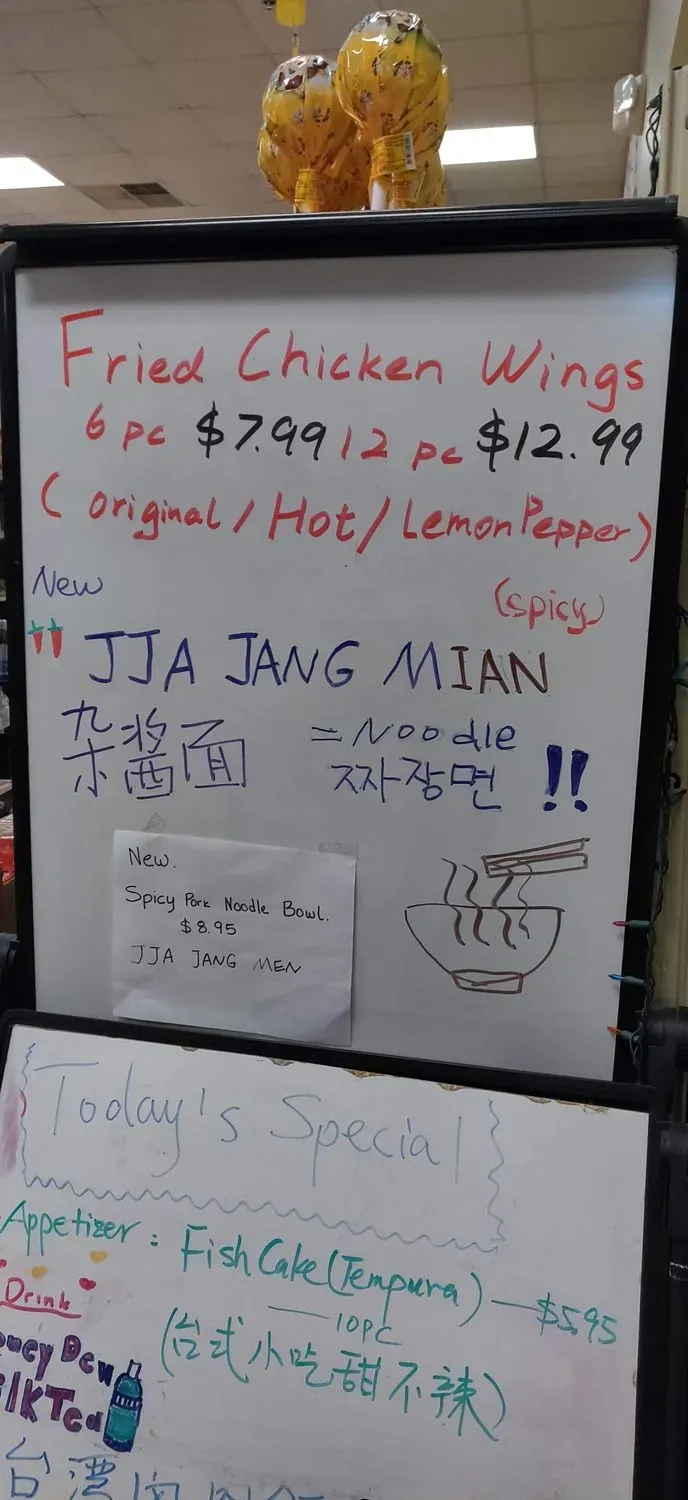 Fried Chicken Wings
6 pc $7.99 12 pc $12.99
( original / Hot / Lemon Pepper )
New
(spicy)
JJA JANG MIAN
杂酱面 = Noodle
짜장면 !!
New.
Spicy Pork Noodle Bowl.
$8.95
JJA JANG MEN
Today's Special
Appetizer : Fish Cake (Tempura) — $5.95
10pc
(台式小吃甜不辣)
Drink
ney Dew
ilk Tea
台灣